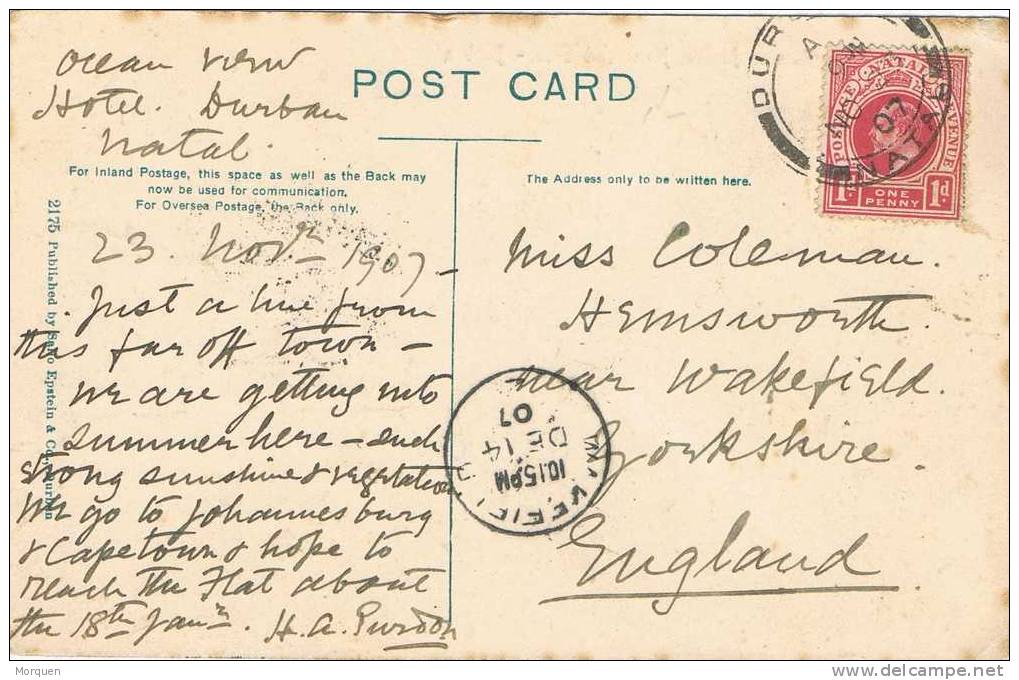 Ocean View
Hotel. Durban
Natal.
POST CARD
For Inland Postage, this space as well as the Back may
now be used for communication.
For Oversea Postage, the Back only.
The Address only to be written here.
2175 Published by Sallo Epstein & Co. Durban
23. Novr 1907 -
Just a line from
this far off town -
we are getting into
summer here - such
strong sunshine & vegetation
We go to Johannesburg
& Capetown & hope to
reach the Flat about
the 18th Jany. H. A. Purdon
Miss Coleman.
Hemsworth.
near Wakefield.
Yorkshire.
England
DUR
NO
07
NATAL
NATAL
POSTAGE REVENUE
1d ONE PENNY 1d
WAKEFIELD
10.15 PM
DE 14
07
Morquen
www.delcampe.net